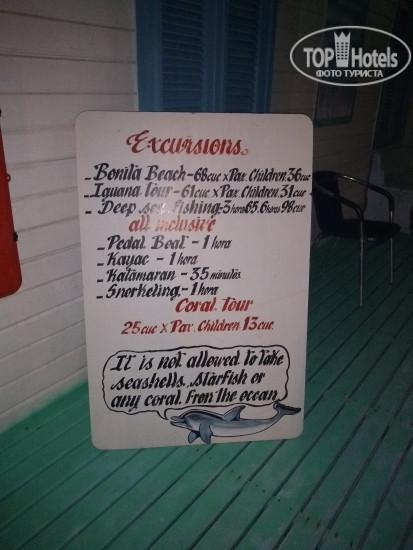 TOP Hotels
ФОТО ТУРИСТА
Excursions.
_Bonita Beach - 68cuc x Pax. Children. 36cuc
_Iguana Tour - 61cuc x Pax. Children. 31cuc
_Deep sea fishing - 3 horas 65. 6 horas 98cuc
all inclusive
_Pedal Boat - 1 hora
_Kayac - 1 hora
_Katamaran - 35 minutos
_Snorkeling - 1 hora
Coral Tour
25cuc x Pax. Children 13cuc.
It is not allowed to take
seashells, starfish or
any coral. Fron the ocean